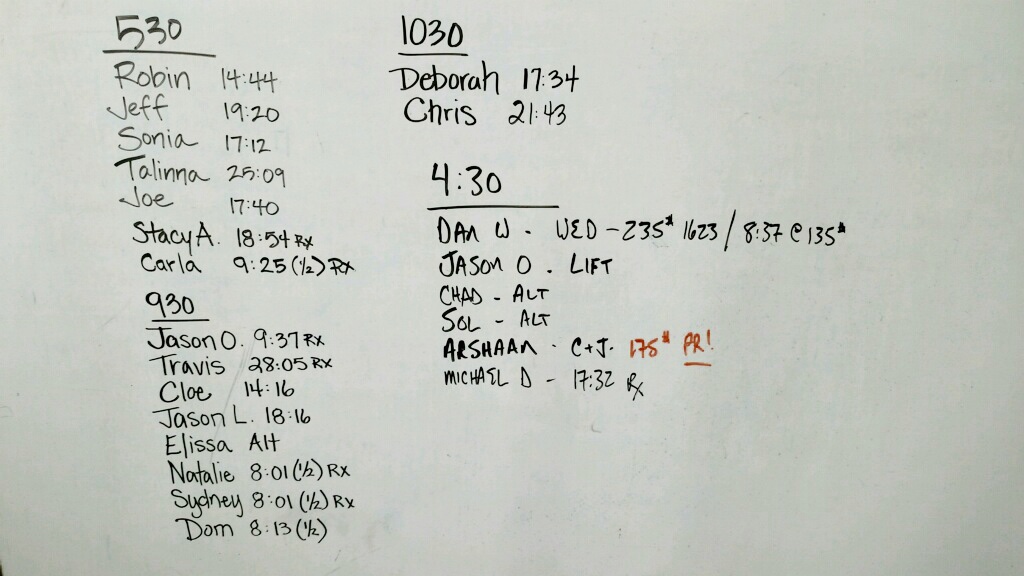 530
Robin 14:44
Jeff 19:20
Sonia 17:12
Talinna 25:09
Joe 17:40
Stacy A. 18:54 Rx
Carla 9:25 (1/2) Rx
930
Jason O. 9:37 Rx
Travis 28:05 Rx
Cloe 14:16
Jason L. 18:16
Elissa Alt
Natalie 8:01 (1/2) Rx
Sydney 8:01 (1/2) Rx
Dom 8:13 (1/2)
1030
Deborah 17:34
Chris 21:43
4:30
DAN W - WED - 235# 1623 / 8:37 @ 135#
JASON O. LIFT
CHAD - ALT
SOL - ALT
ARSHAAN - C+J. 175# PR!
MICHAEL D - 17:32 Rx